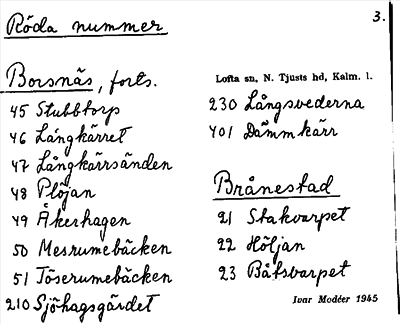 Röda nummer
3.
Borsnäs, forts.
45 Stubbtorp
46 Långkärret
47 Långkärrsänden
48 Plöjan
49 Åkerhagen
50 Mesrumebäcken
51 Töserumebäcken
210 Sjöhagsgärdet
Lofta sn, N. Tjusts hd, Kalm. l.
230 Långsvederna
401 Dämmkärr
Brånestad
21 Stakvarpet
22 Höljan
23 Båtsvarpet
Ivar Modéer 1945